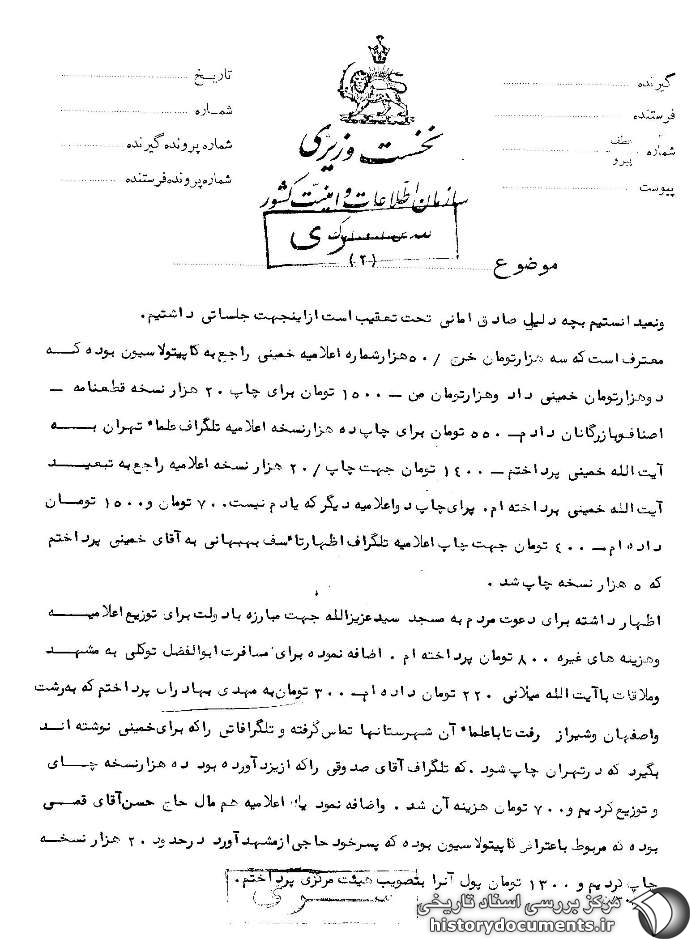 گیرنده
فرستنده
شماره عطف پیرو
پیوست
نخست وزیری
سازمان اطلاعات و امنیت کشور
سری
(۲)
تاریخ
شماره
شماره پرونده گیرنده
شماره پرونده فرستنده
موضوع
ونمیدانستیم بچه دلیل صادق امانی تحت تعقیب است ازاینجهت جلساتی داشتیم.
معترف است که سه هزارتومان خرج /۵۰هزارشماره اعلامیه خمینی راجع به کاپیتولاسیون بوده کــه
دوهزارتومان خمینی داد وهزارتومان من – ۱۵۰۰ تومان برای چاپ ۲۰ هزار نسخه قطعنامه –
اصناف وبازرگانان دادم – ۵۵۰ تومان برای چاپ ده هزارنسخه اعلامیه تلگراف علماء تهران بــه
آیت الله خمینی پرداختم – ۱۴۰۰ تومان جهت چاپ /۲۰ هزار نسخه اعلامیه راجع به تبعیــد
آیت الله خمینی پرداخته ام. برای چاپ دواعلامیه دیگر که یادم نیست ۷۰۰ تومان و۱۵۰۰ تومــان
داده ام – ۴۰۰ تومان جهت چاپ اعلامیه تلگراف اظهارتاءسف بهبهانی به آقای خمینی پرداختم
که ۵ هزار نسخه چاپ شد .
اظهار داشته برای دعوت مردم به مسجد سیدعزیزالله جهت مبارزه بادولت برای توزیع اعلامیــه
وهزینه های غیره ۸۰۰ تومان پرداخته ام . اضافه نموده برای مسافرت ابوالفضل توکلی به مشهــد
وملاقات باآیت الله میلانی ۲۲۰ تومان داده ام – ۳۰۰ تومان به مهدی بهادران پرداختم که به رشت
واصفهان وشیراز رفت تاباعلماء آن شهرستانها تماس گرفته و تلگرافاتی راکه برای خمینی نوشته انــد
بگیرد که درتهران چاپ شود .که تلگراف آقای صدوقی راکه ازیزدآورده بود ده هزارنسخه چــاپ
و توزیع کردیم و۷۰۰ تومان هزینه آن شد . واضافه نمود یک اعلامیه هم مال حاج حسن آقای قمــی
بوده که مربوط باعتراض کاپیتولاسیون بوده که پسرخود حاجی ازمشهدآورد درحدود ۲۰ هزار نسخــه
چاپ کردیم و ۱۳۰۰ تومان پول آنرا بتصویب هیئت مرکزی پرداختم.
سری
مرکز بررسی اسناد تاریخی
historydocuments.ir